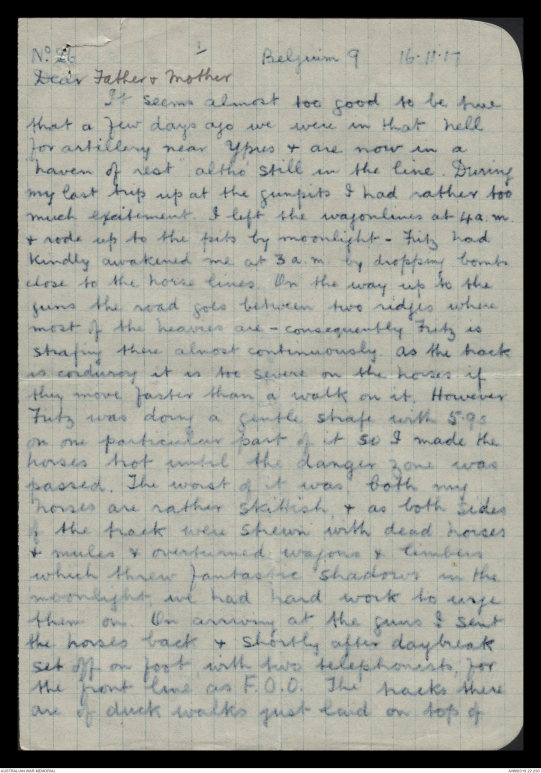 No. 26 1 Belgium 9 16.11.17
Dear Father & Mother
It seems almost too good to be true
that a few days ago we were in that hell
for artillery near Ypres & are now in a
"haven of rest" altho' still in the line. During
my last trip up at the gunpits I had rather too
much excitement. I left the wagonlines at 4 a.m.
& rode up to the pits by moonlight - Fritz had
kindly awakened me at 3 a.m. by dropping bombs
close to the horse lines. On the way up to the
guns the road goes between two ridges where
most of the heavies are - consequently Fritz is
strafing there almost continuously. As the track
is corduroy it is too severe on the horses if
they move faster than a walk on it. However
Fritz was doing a gentle strafe with 5.9s
on one particular part of it so I made the
horses trot until the danger zone was
passed. The worst of it was, both my
horses are rather skittish, & as both sides
of the track were strewn with dead horses
& mules & overturned wagons & limbers
which threw fantastic shadows in the
moonlight, we had hard work to urge
them on. On arriving at the guns I sent
the horses back & shortly after daybreak
set off on foot, with two telephonists, for
the front line as F.O.O. The tracks there
are of duck walks just laid on top of
AUSTRALIAN WAR MEMORIAL